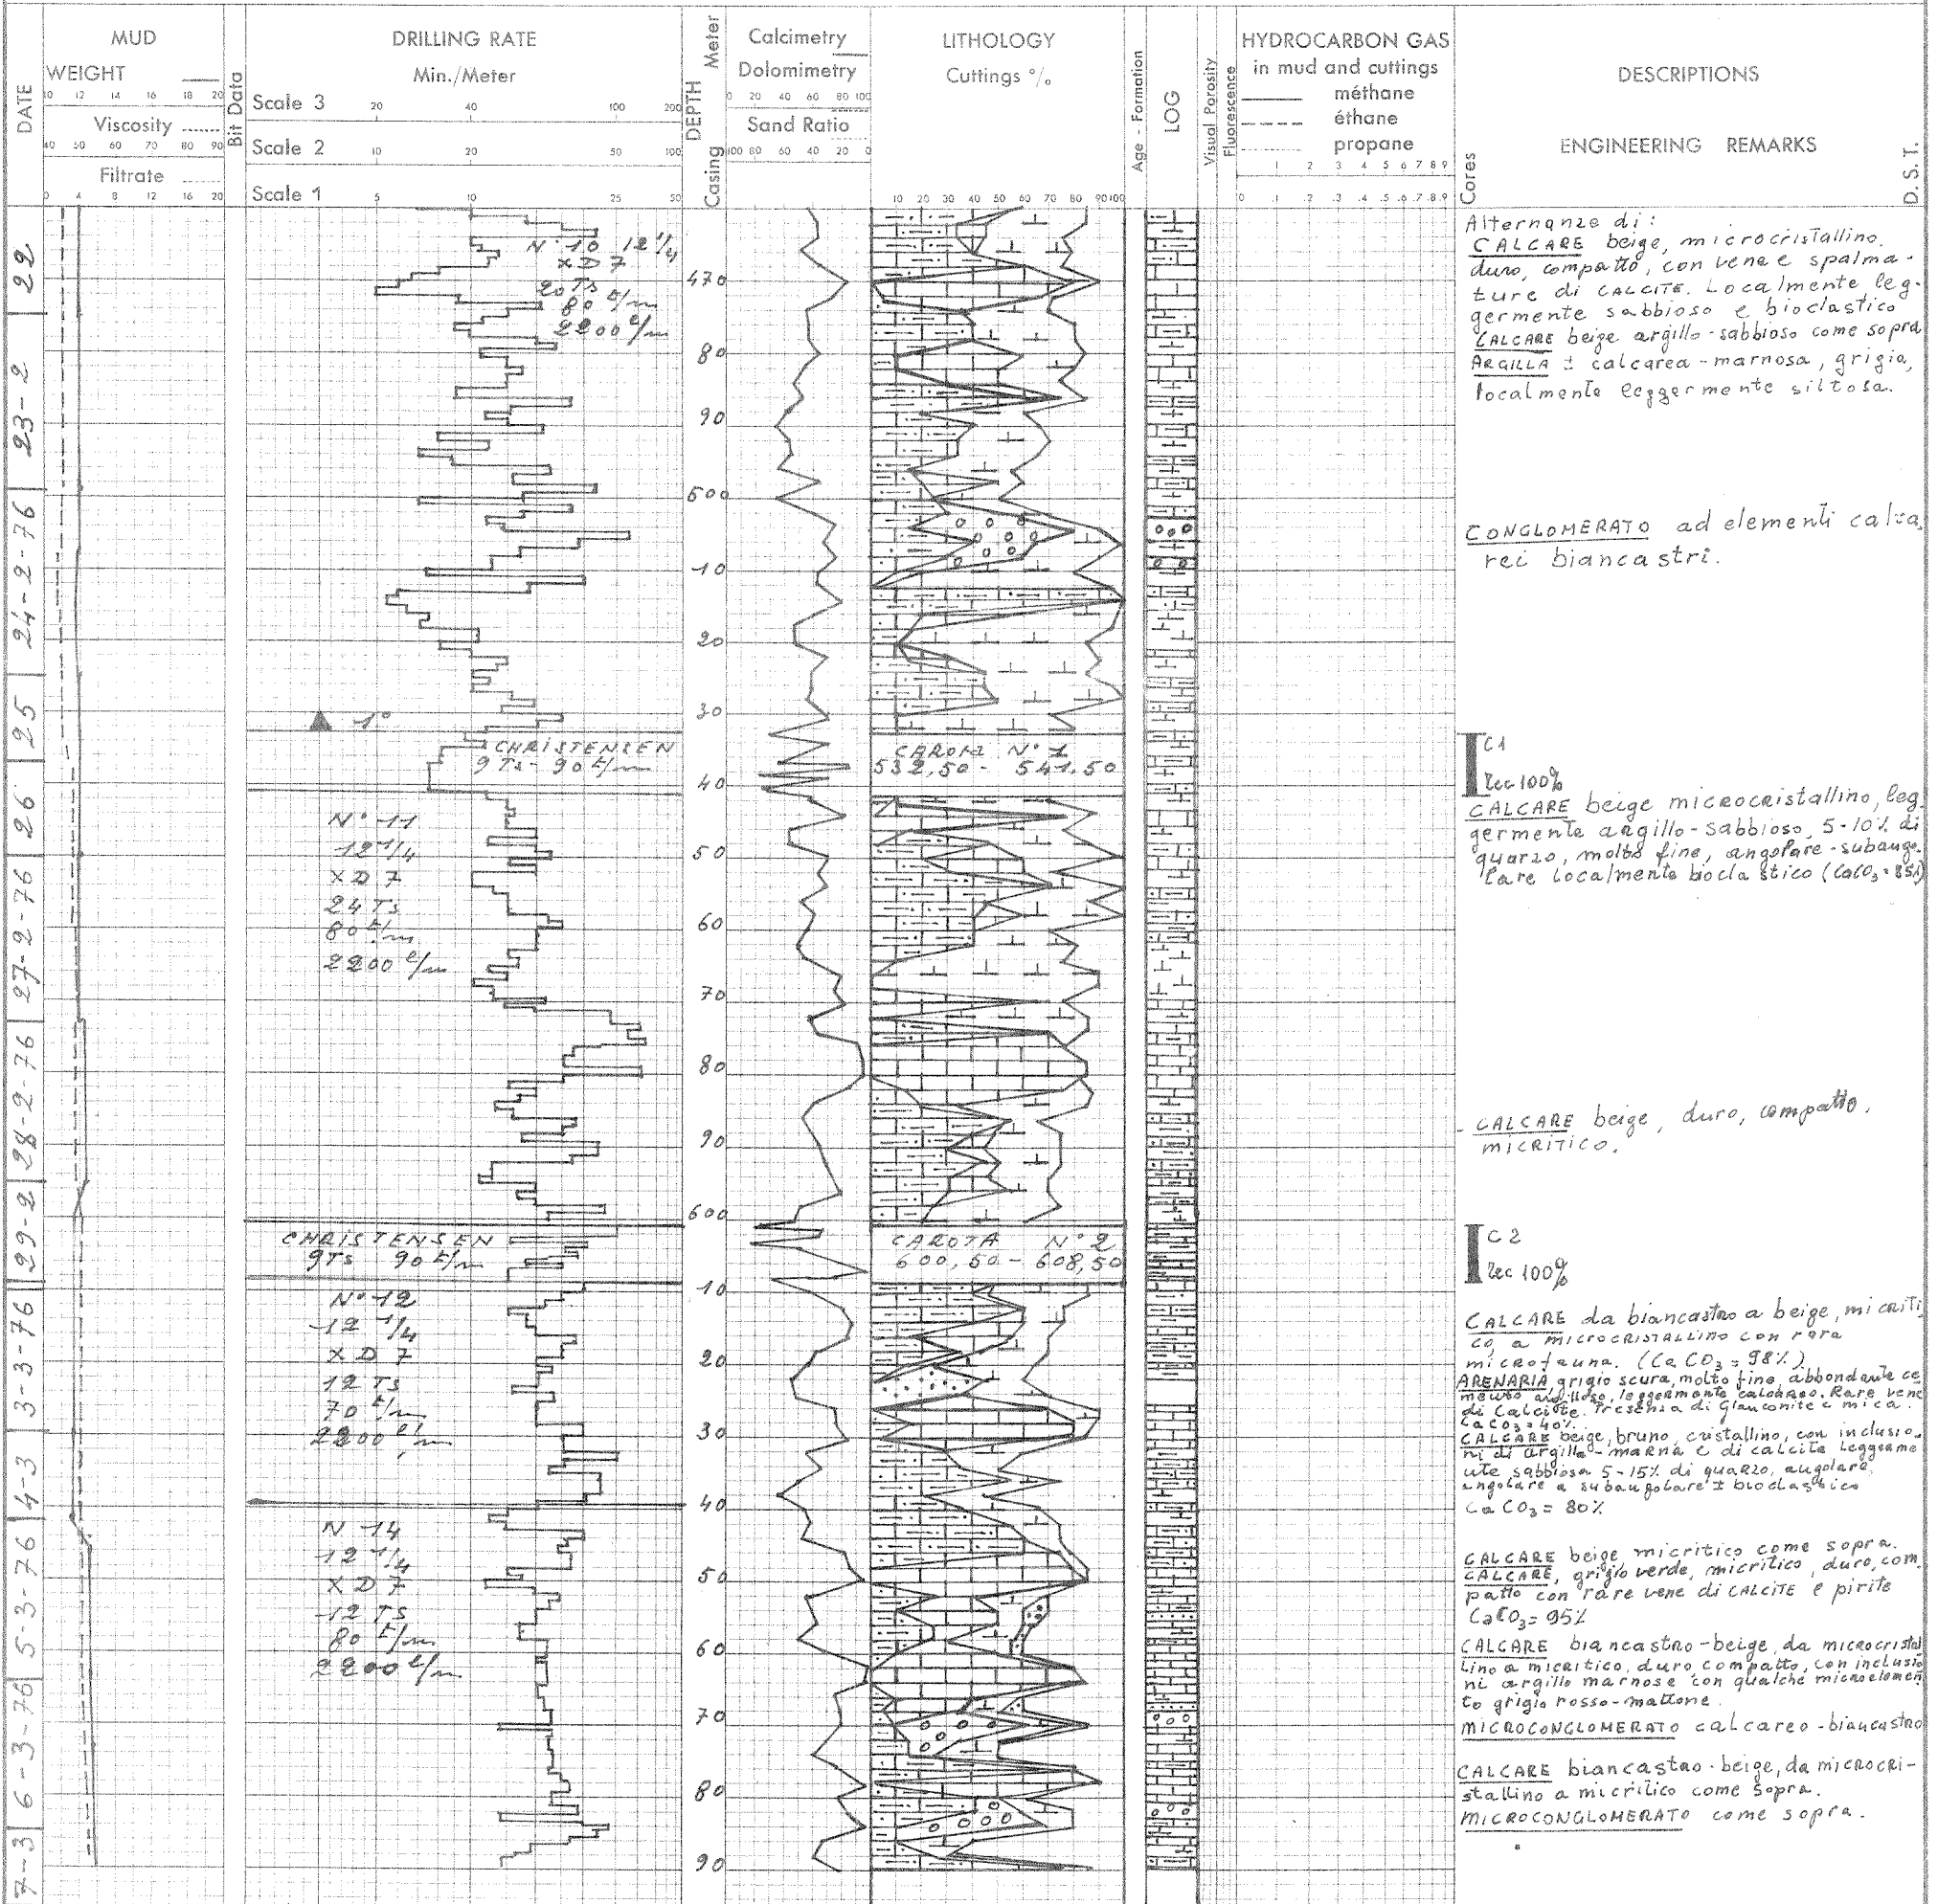 MUD
WEIGHT
10 12 14 16 18 20
Viscosity
40 50 60 70 80 90
Filtrate
0 4 8 12 16 20
DATE
Bit Data
DRILLING RATE
Min./Meter
Scale 3 20 40 100 200
Scale 2 10 20 50 100
Scale 1 5 10 25 50
DEPTH Meter
Casing
Calcimetry
Dolomimetry
0 20 40 60 80 100
Sand Ratio
100 80 60 40 20 0
LITHOLOGY
Cuttings %
10 20 30 40 50 60 70 80 90 100
Age - Formation
LOG
Visual Porosity
Fluorescence
HYDROCARBON GAS
in mud and cuttings
méthane
éthane
propane
1 2 3 4 5 6 7 8 9
0 .1 .2 .3 .4 .5 .6 .7 .8 .9
Cores
DESCRIPTIONS
ENGINEERING REMARKS
D. S. T.
22
23-2
24-2-76
25
26
27-2-76
28-2-76
29-2
3-3-76
4-3
5-3-76
6-3-76
7-3
N° 10 12 1/4
XD 7
20 Ts
80 t/m
2200 l/m
1°
CHRISTENSEN
9 Ts - 90 t/m
N° 11
12 1/4
XD 7
24 Ts
80 t/m
2200 l/m
CHRISTENSEN
9Ts 90 t/m
N° 12
12 1/4
XD 7
12 TS
70 t/m
2200 l/m
N 14
12 1/4
XD 7
12 TS
80 t/m
2200 l/m
470
80
90
500
10
20
30
40
50
60
70
80
90
600
10
20
30
40
50
60
70
80
90
CAROTA N° 1
532,50 - 541.50
CAROTA N° 2
600,50 - 608,50
Alternanze di :
CALCARE beige, microcristallino,
duro, compatto, con vene e spalma-
ture di CALCITE. Localmente leg-
germente sabbioso e bioclastico
CALCARE beige argillo-sabbioso come sopra
ARGILLA ± calcarea-marnosa, grigia,
localmente leggermente siltosa.
CONGLOMERATO ad elementi calca
rei biancastri.
C1
Rec 100%
CALCARE beige microcristallino, leg
germente argillo-sabbioso, 5-10% di
quarzo, molto fine, angolare-subango
lare localmente bioclastico (CaCO3 = 85%)
- CALCARE beige, duro, compatto,
micritico.
C2
Rec 100%
CALCARE da biancastro a beige, micriti
co, a microcristallino con rara
microfauna. (CaCO3 = 98%)
ARENARIA grigio scura, molto fine, abbondante ce
mento argilloso, leggermente calcareo. Rare vene
di Calcite. Presenza di Glauconite e mica.
CaCO3 = 40%.
CALCARE beige, bruno, cristallino, con inclusio-
ni di argilla-marna e di calcite leggerme
nte sabbiosa 5-15% di quarzo, angolare,
angolare a subangolare ± bioclastico
CaCO3 = 80%
CALCARE beige micritico come sopra.
CALCARE, grigio verde, micritico, duro, com
patto con rare vene di CALCITE e pirite
CaCO3 = 95%
CALCARE biancastro-beige, da microcristal
lino a micritico, duro, compatto, con inclusio
ni argillo marnose con qualche microelemen
to grigio rosso-mattone.
MICROCONGLOMERATO calcareo-biancastro
CALCARE biancastro-beige, da microcri-
stallino a micritico come sopra.
MICROCONGLOMERATO come sopra.